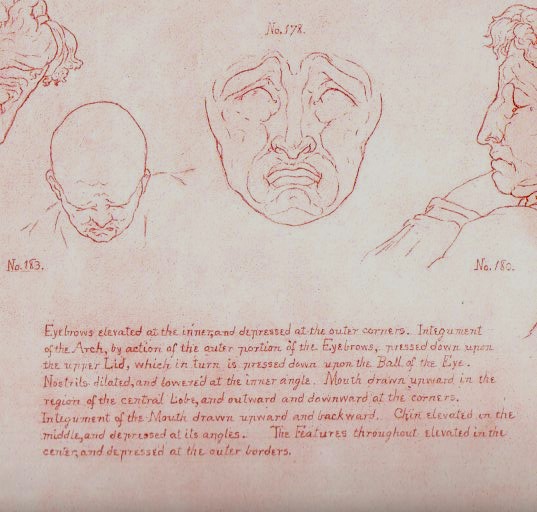 No. 178.
No. 183.
No. 180.
Eyebrows elevated at the inner, and depressed at the outer corners. Integument
of the Arch, by action of the outer portion of the Eyebrows, pressed down upon
the upper Lid, which in turn is pressed down upon the Ball of the Eye.
Nostrils dilated, and lowered at the inner angle. Mouth drawn upward in the
region of the central Lobe, and outward and downward at the corners.
Integument of the Mouth drawn upward and backward. Chin elevated in the
middle, and depressed at its angles. The Features throughout elevated in the
center, and depressed at the outer borders.